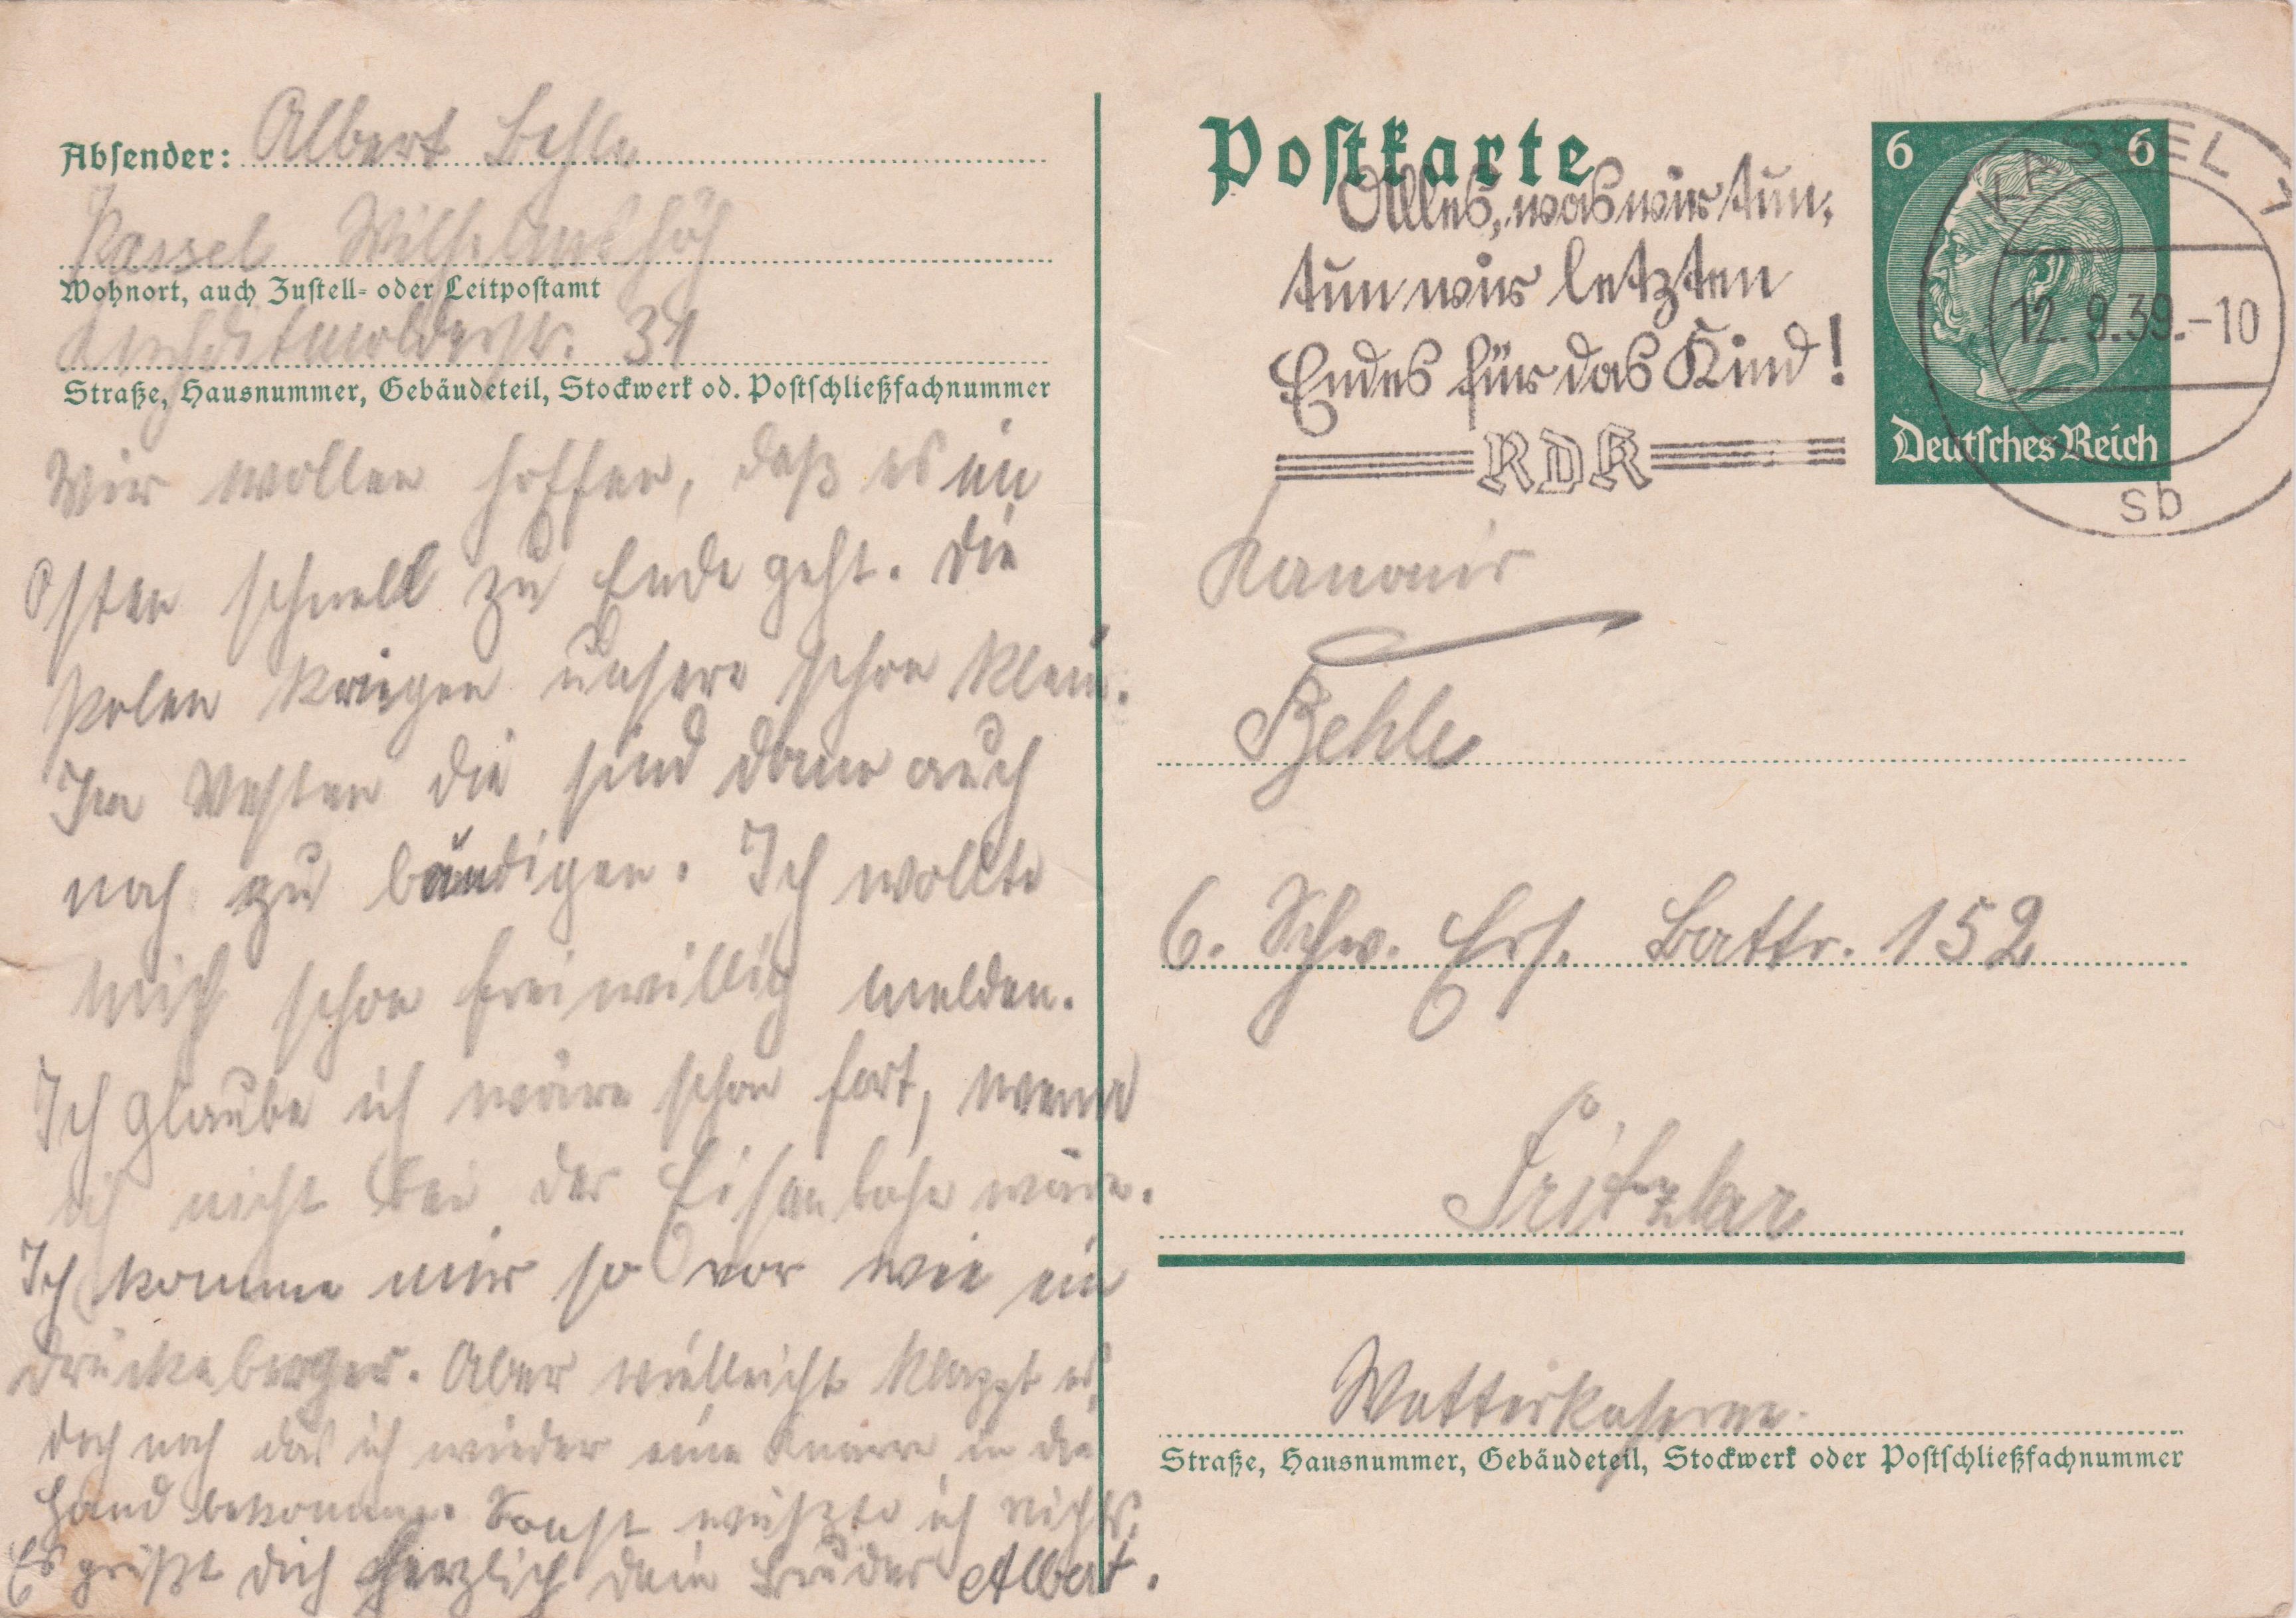 Absender: Albert Behle
Kassel Wilhelmshöh
Wohnort, auch Zustell- oder Leitpostamt
Kirchditmolderstr. 31
Straße, Hausnummer, Gebäudeteil, Stockwerk od. Postschließfachnummer
Wir wollen hoffen, daß es im
Osten schnell zu Ende geht. Die
Polen kriegen unsere schon klein.
Im Westen die sind dann auch
noch zu bändigen. Ich wollte
mich schon freiwillig melden.
Ich glaube ich wäre schon fort, wenn
ich nicht bei der Eisenbahn wäre.
Ich komme mir so vor wie ein
Drückeberger. Aber vielleicht klappt es
doch noch das ich wieder eine Knarre in die
Hand bekomme. Sonst wüßte ich nichts.
Es grüßt dich herzlich dein Bruder Albert.
Postkarte
Alles, was wir tun,
tun wir letzten
Endes für das Kind!
RDK
6 6
Deutsches Reich
KASSEL 1
12.9.39.-10
sb
Kanonir
Behle
6. Schw. Ers. Battr. 152
Fritzlar
Watterkaserne.
Straße, Hausnummer, Gebäudeteil, Stockwerk oder Postschließfachnummer